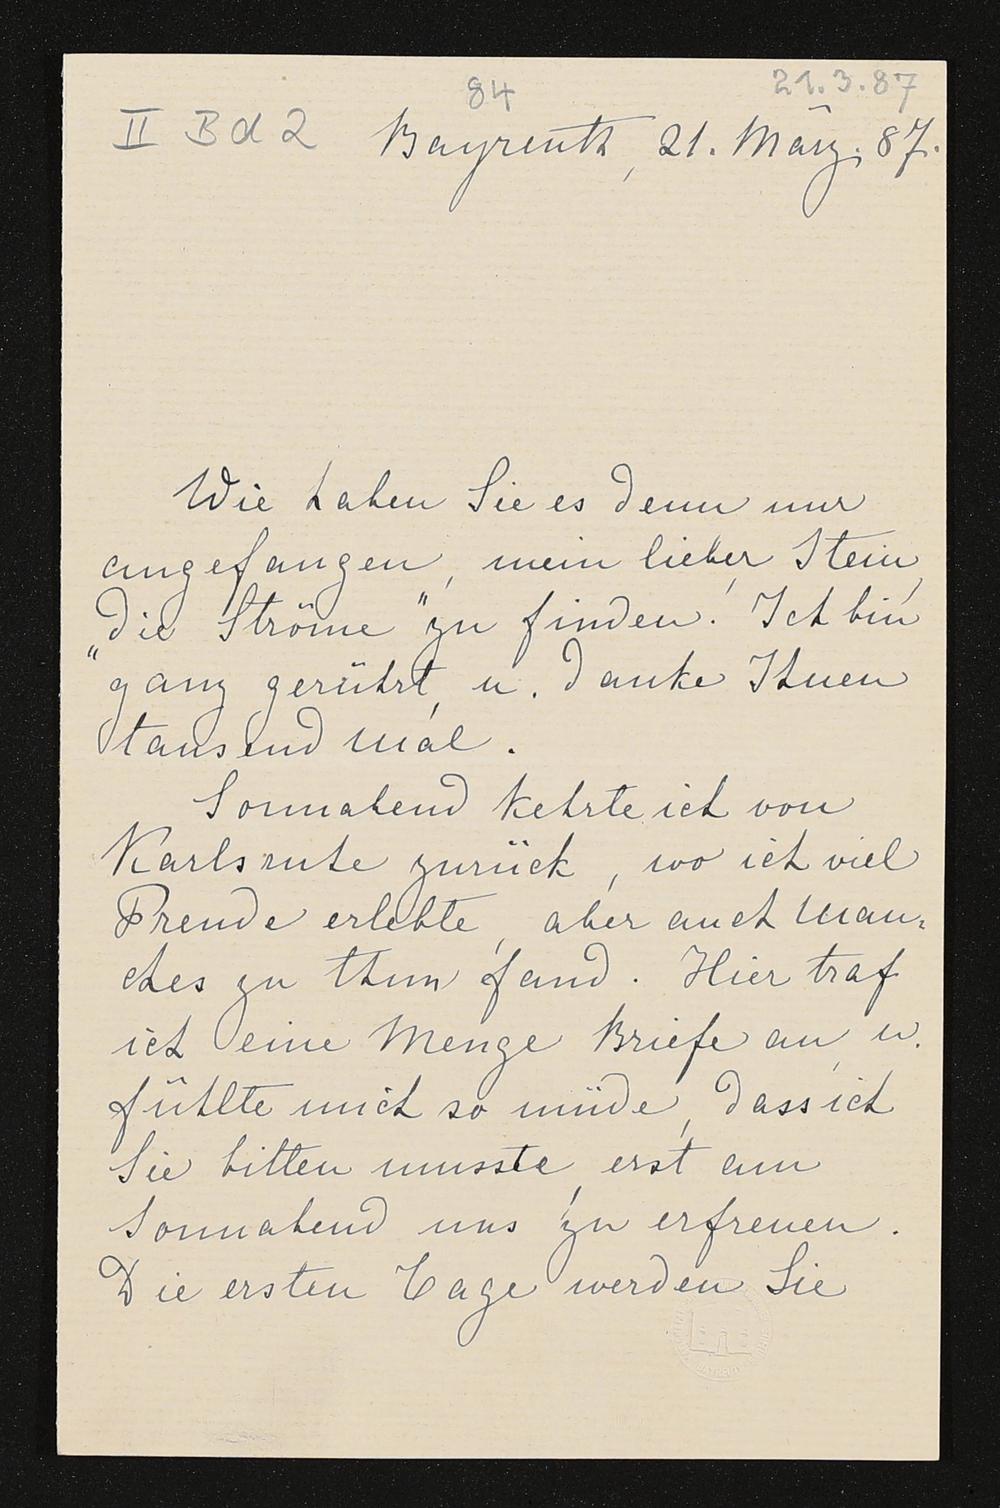 84
21.3.87
II Bd 2
Bayreuth, 21. März. 87.
Wie haben Sie es denn nur
angefangen, mein lieber Stein,
„die Ströme" zu finden! Ich bin
ganz gerührt, u. danke Ihnen
tausend mal.
Sonnabend kehrte ich von
Karlsruhe zurück, wo ich viel
Freude erlebte, aber auch man-
ches zu thun fand. Hier traf
ich eine Menge Briefe an, u.
fühlte mich so müde, dass ich
Sie bitten musste, erst am
Sonnabend uns zu erfreuen.
Die ersten Tage werden Sie